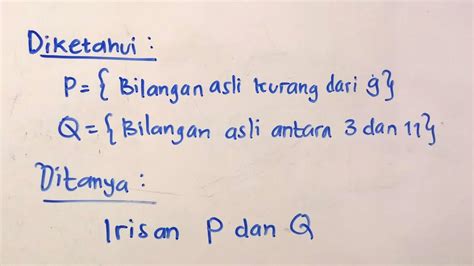 Diketahui :
P = { Bilangan asli kurang dari 9}
Q = { Bilangan asli antara 3 dan 11}
Ditanya :
Irisan P dan Q